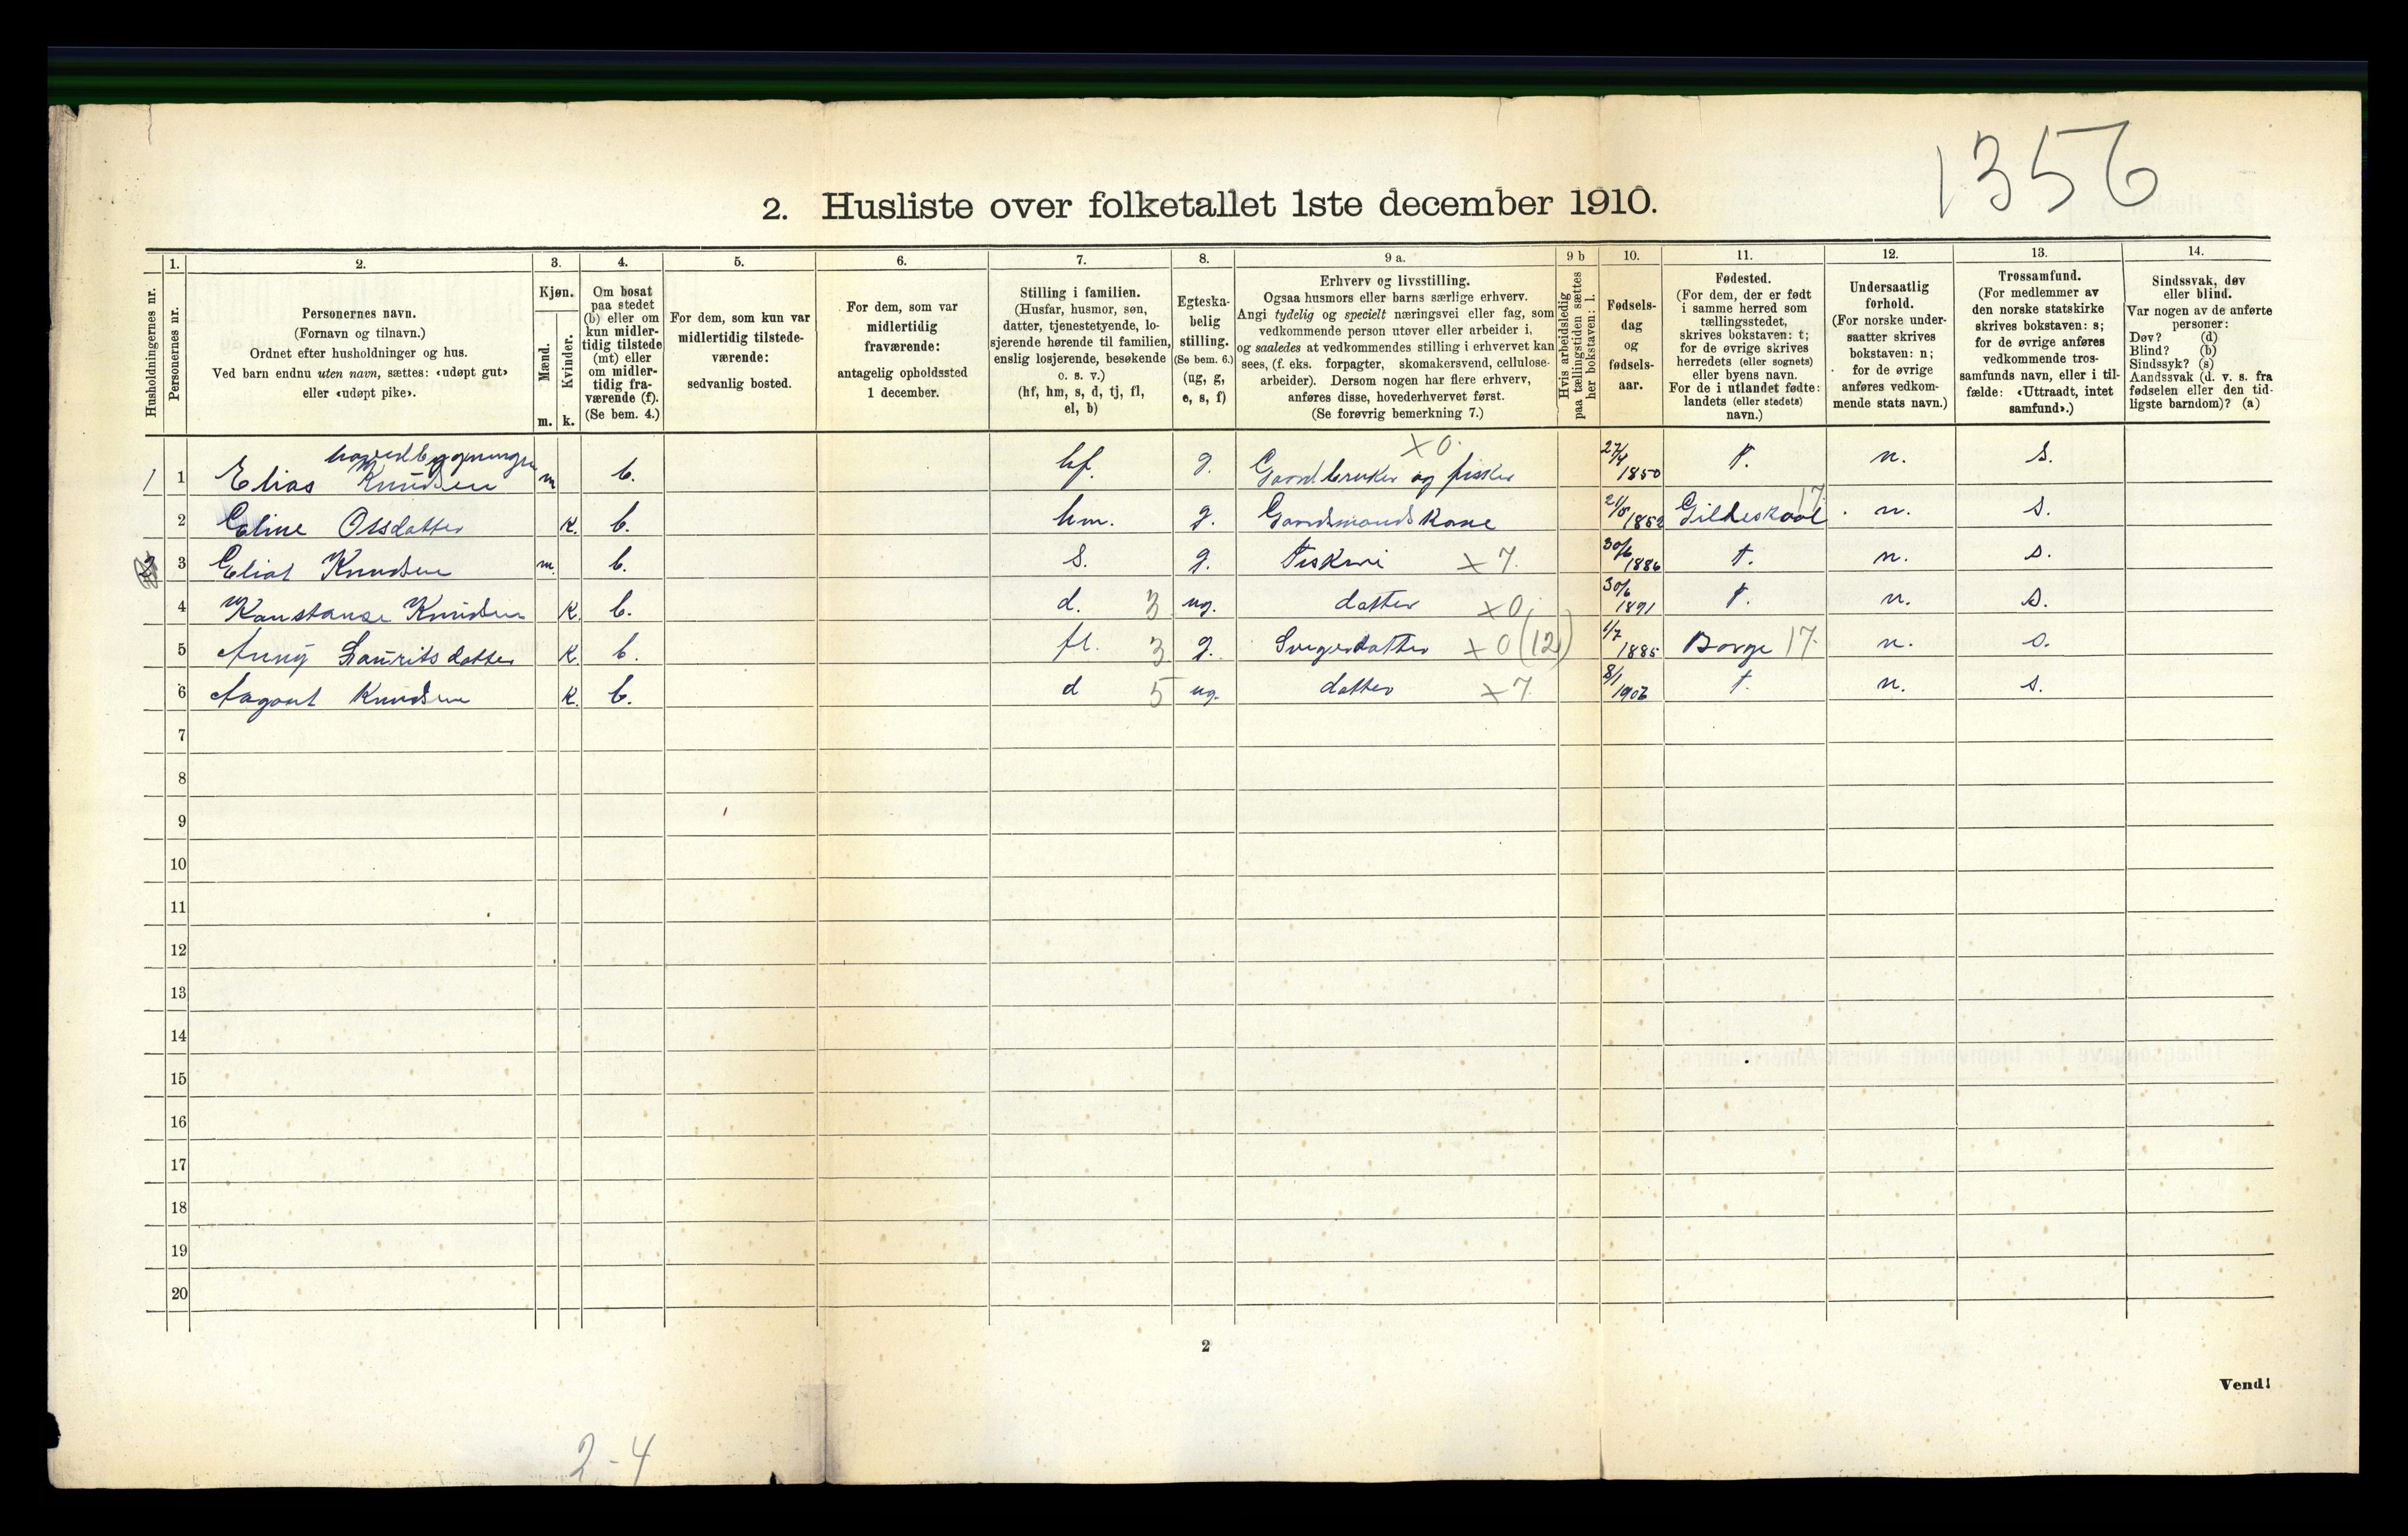 1356
2. Husliste over folketallet 1ste december 1910.
Husholdningernes nr.
1.
Personernes nr.
2.
Personernes navn.
(Fornavn og tilnavn.)
Ordnet efter husholdninger og hus.
Ved barn endnu uten navn, sættes: «udøpt gut»
eller «udøpt pike».
3.
Kjøn.
Mænd.
Kvinder.
m. k.
4.
Om bosat
paa stedet
(b) eller om
kun midler-
tidig tilstede
(mt) eller
om midler-
tidig fra-
værende (f).
(Se bem. 4.)
5.
For dem, som kun var
midlertidig tilstede-
værende:
sedvanlig bosted.
6.
For dem, som var
midlertidig
fraværende:
antagelig opholdssted
1 december.
7.
Stilling i familien.
(Husfar, husmor, søn,
datter, tjenestetyende, lo-
sjerende hørende til familien,
enslig losjerende, besøkende
o. s. v.)
(hf, hm, s, d, tj, fl,
el, b)
8.
Egteska-
belig
stilling.
(Se bem. 6.)
(ug, g,
e, s, f)
9 a.
Erhverv og livsstilling.
Ogsaa husmors eller barns særlige erhverv.
Angi tydelig og specielt næringsvei eller fag, som
vedkommende person utøver eller arbeider i,
og saaledes at vedkommendes stilling i erhvervet kan
sees, (f. eks. forpagter, skomakersvend, cellulose-
arbeider). Dersom nogen har flere erhverv,
anføres disse, hovederhvervet først.
(Se forøvrig bemerkning 7.)
9 b
Hvis arbeidsledig
paa tællingstiden sættes
her bokstaven: l.
10.
Fødsels-
dag
og
fødsels-
aar.
11.
Fødested.
(For dem, der er født
i samme herred som
tællingsstedet,
skrives bokstaven: t;
for de øvrige skrives
herredets (eller sognets)
eller byens navn.
For de i utlandet fødte:
landets (eller stedets)
navn.)
12.
Undersaatlig
forhold.
(For norske under-
saatter skrives
bokstaven: n;
for de øvrige
anføres vedkom-
mende stats navn.)
13.
Trossamfund.
(For medlemmer av
den norske statskirke
skrives bokstaven: s;
for de øvrige anføres
vedkommende tros-
samfunds navn, eller i til-
fælde: «Uttraadt, intet
samfund».)
14.
Sindssvak, døv
eller blind.
Var nogen av de anførte
personer:
Døv? (d)
Blind? (b)
Sindssyk? (s)
Aandssvak (d. v. s. fra
fødselen eller den tid-
ligste barndom)? (a)
hovedbygningen
1 1 Elias Knudsen m b. hf. g. Gaardbruker og fisker x 0. 27/4 1850 t. n. s.
2 Eline Olsdatter k. b. hm. g. Gaardmandskone 21/5 1852 Gildeskaal 17 n. s.
3 Eliat Knudsen m. b. s. g. Fiskeri x 7. 30/6 1886 t. n. s.
4 Konstanse Knudsen k. b. d. 3 ug. datter x 0 30/6 1891 t. n. s.
5 Anny Lauritsdatter k. b. fl. 3 g. Svigerdatter x 0 (12) 1/7 1885 Borge 17. n. s.
6 Aagaut Knudsen k. b. d 5 ug. datter x 7. 8/1 1906 t. n. s.
7
8
9
10
11
12
13
14
15
16
17
18
19
20
2
Vend!
2-4